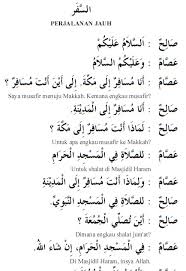 السَّفَر
PERJALANAN JAUH
صَالِحٌ : اَلسَّلاَمُ عَلَيْكُمْ
عَصَّامٌ : وَعَلَيْكُمُ السَّلاَمُ
عَصَّامٌ : أَنَا مُسَافِرٌ إِلَى مَكَّةَ. إِلَى أَيْنَ أَنْتَ مُسَافِرٌ ؟
Saya musafir menuju Makkah. Kemana engkau musafir?
صَالِحٌ : أَنَا مُسَافِرٌ إِلَى الْمَدِيْنَةِ.
عَصَّامٌ : لِمَاذَا أَنْتَ مُسَافِرٌ إِلَى مَكَّةَ ؟
Untuk apa engkau musafir ke Makkah?
عَصَّامٌ : لِلصَّلاَةِ فِي الْمَسْجِدِ الْحَرَامِ.
Untuk shalat di Masjidil Haram
عَصَّامٌ : وَلِمَاذَا أَنْتَ مُسَافِرٌ إِلَى الْمَدِيْنَةِ
صَالِحٌ : لِلصَّلاَةِ فِي الْمَسْجِدِ النَّبَوِيِّ.
صَالِحٌ : أَيْنَ تُصَلِّي الْجُمُعَةَ ؟
Dimana engkau shalat jum'at?
عَصَّامٌ : فِي الْمَسْجِدِ الْحَرَامِ، إِنْ شَاءَ اللهُ
Di Masjidil Haram, insya Allah.